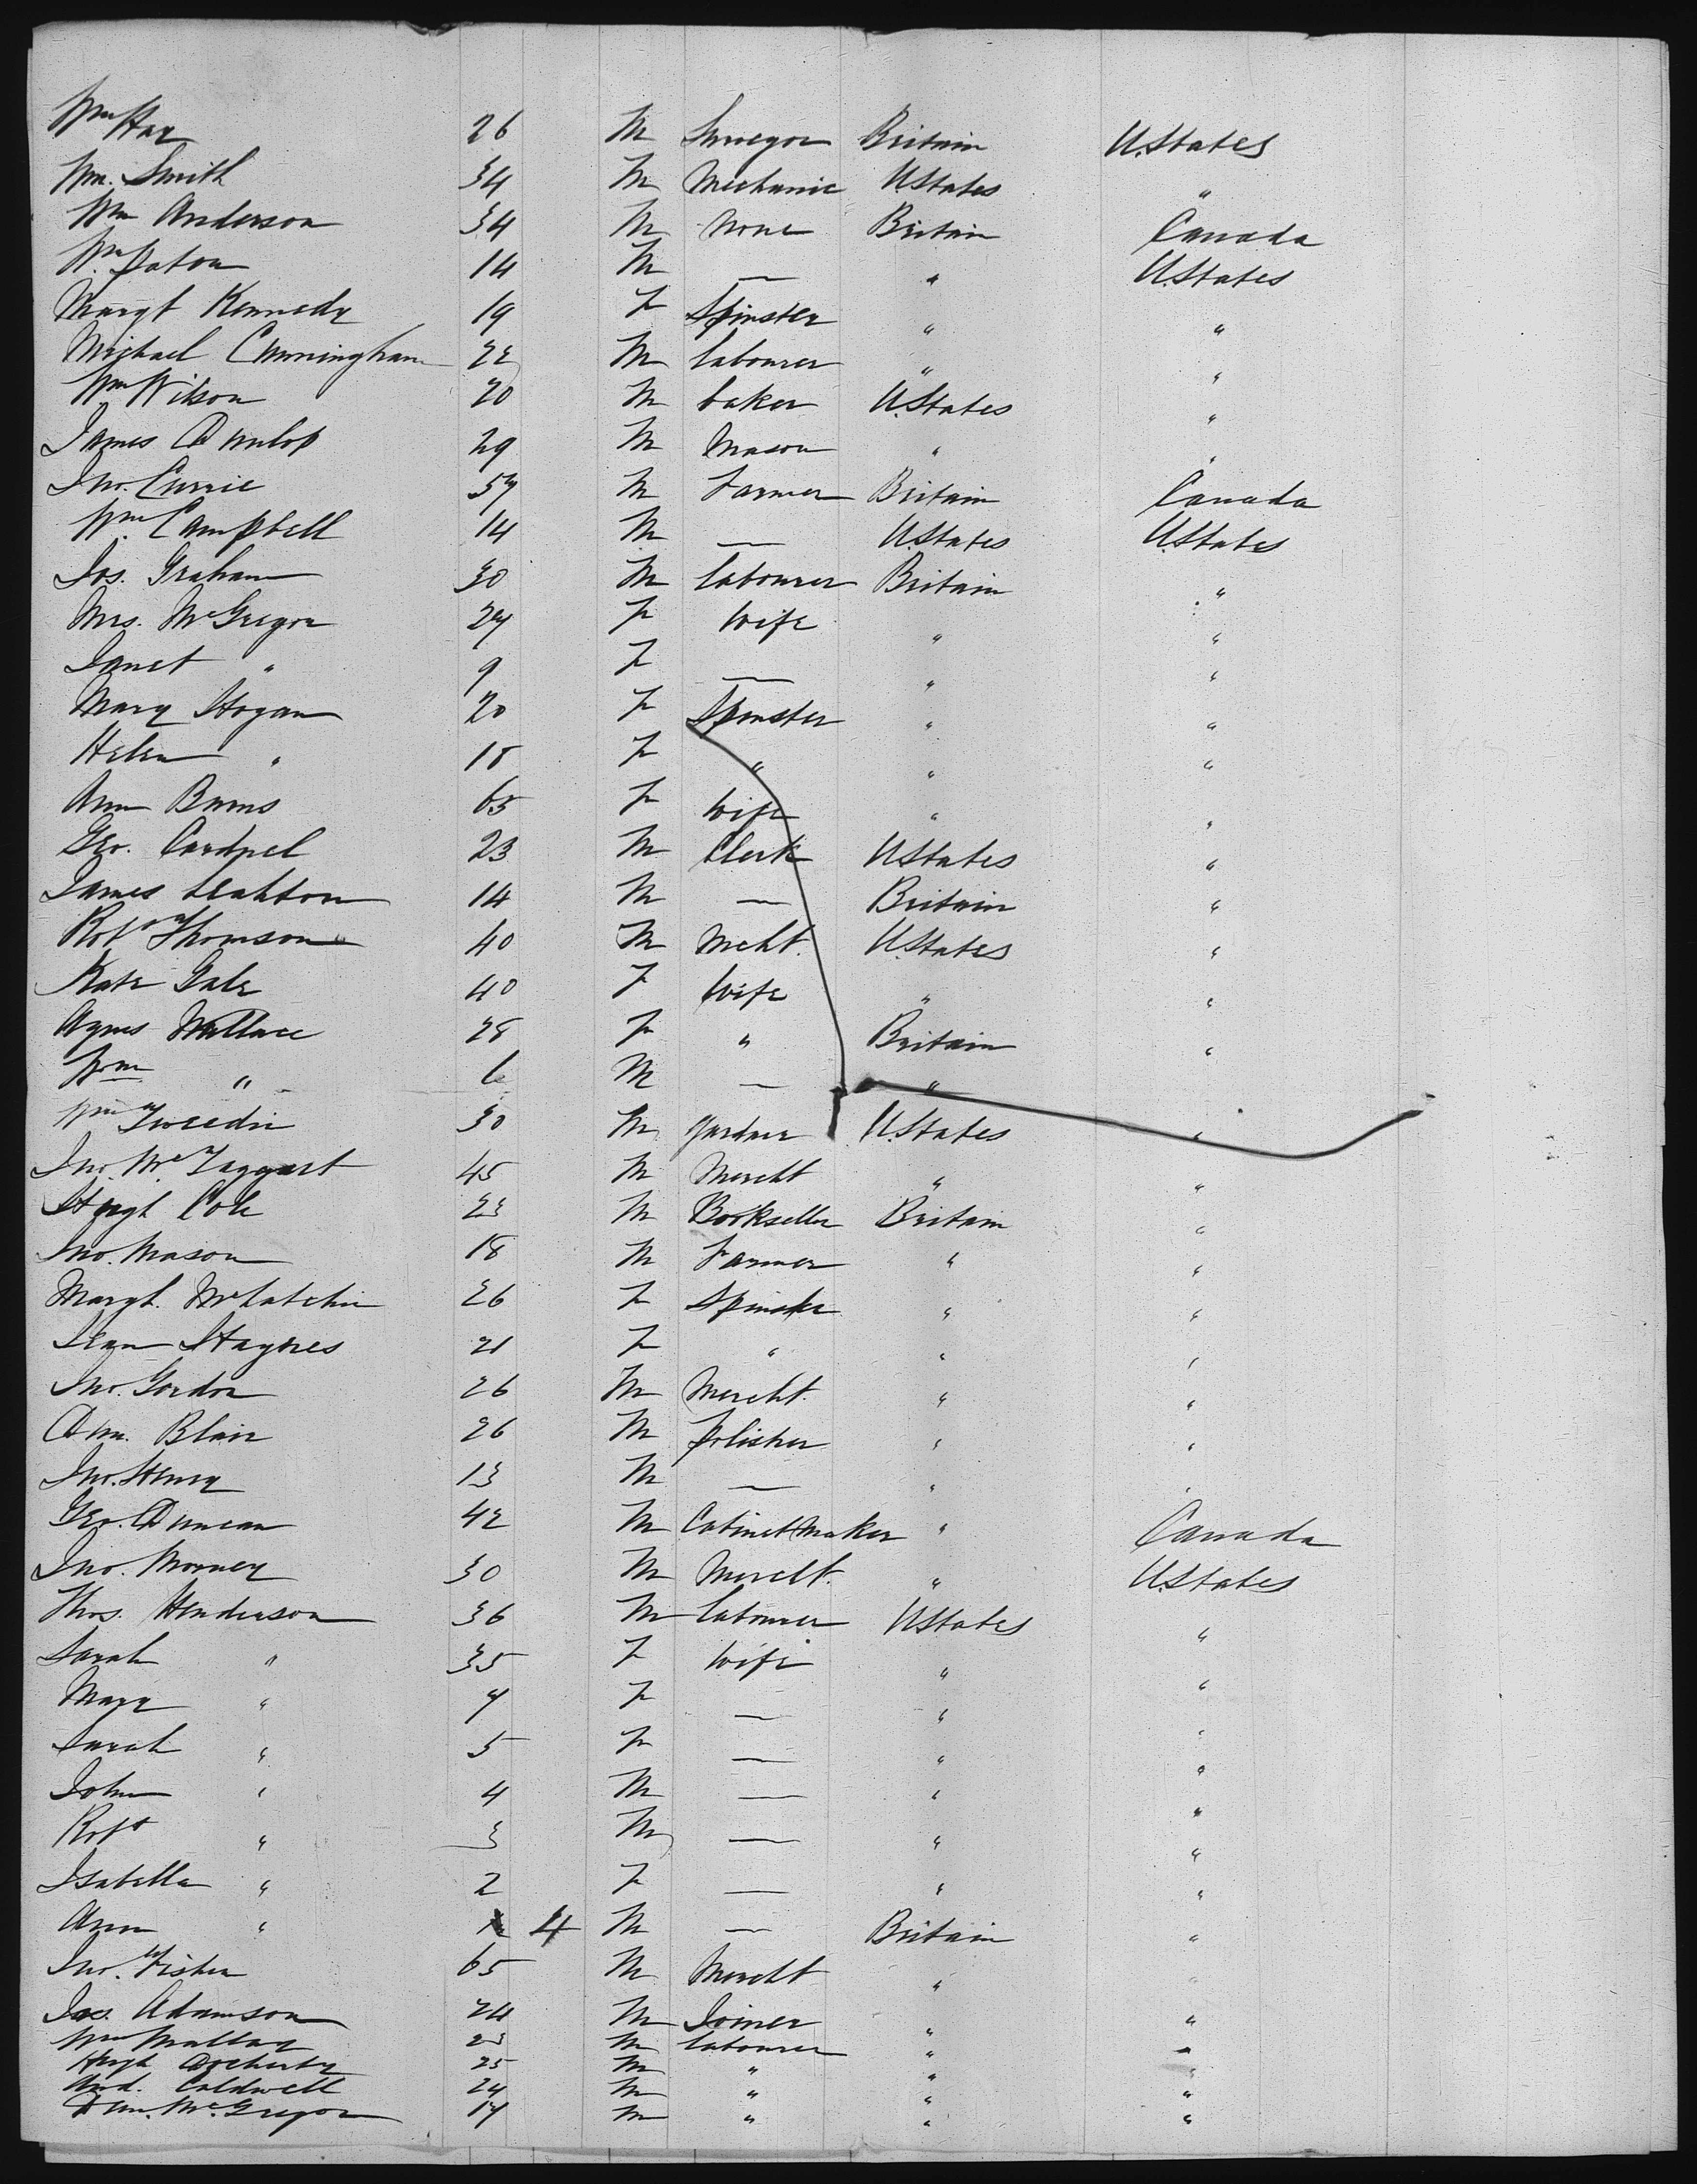 Wm Hay 26 M Surveyor Britain U.States
Wm. Smith 34 M Mechanic U.States "
Wm Anderson 34 M None Britain Canada
Wm Paton 14 M — " U.States
Margt Kennedy 19 F Spinster " "
Michael Cunningham 22 M labourer " "
Wm Wilson 20 M baker U.States "
James Dunlop 29 M Mason " "
Jno. Currie 57 M Farmer Britain Canada
Wm Campbell 14 M — U.States U.States
Jos. Graham 30 M labourer Britain "
Mrs. McGregor 27 F Wife " "
Janet " 9 F — " "
Mary Hogan 20 F Spinster " "
Helen " 18 F " " "
Ann Burns 65 F Wife " "
Geo. 23 M Clerk U.States "
James 14 M — Britain "
Robt Thomson 40 M Mcht. U.States "
Kate Gale 40 F Wife " "
Agnes Wallace 28 F " Britain "
Wm " 6 M — " "
Wm Tweedie 30 M gardner U.States "
Jno. McTaggart 45 M Mercht " "
Hugh Cole 23 M Bookseller Britain "
Jno. Mason 18 M Farmer " "
Margt. McCutchin 26 F Spinster " "
Jean 21 F " " "
Jno. Gordon 26 M Mercht. " "
Dun. Blair 26 M polisher " "
Jno. Henry 13 M — " "
Geo. Duncan 42 M Cabinet Maker " Canada
Jno. 30 M Mercht. " U.States
Thos. Henderson 36 M labourer U.States "
Sarah " 35 F Wife " "
Mary " 7 F — " "
Sarah " 5 F — " "
John " 4 M — " "
Robt " 3 M — " "
Isabella " 2 F — " "
Ann " 4 M — Britain "
Jno. Fisher 65 M Mercht " "
Jas. Adamson 24 M Joiner " "
Wm 23 M labourer " "
Hugh Docherty 25 M " " "
And. Caldwell 24 M " " "
Dun. McGregor 17 M " " "